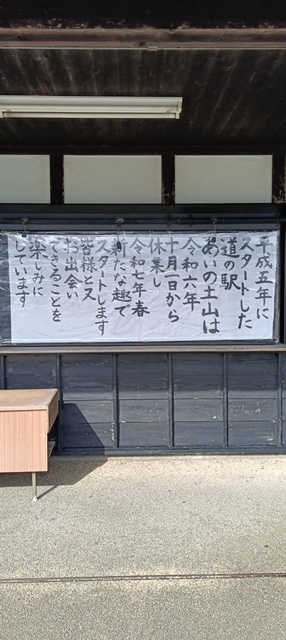 平成五年に
スタートした
道の駅
あいの土山は
令和六年
十月一日から
休業し
令和七年春
新たな趣で
スタートします
皆様と又
お出会い
できることを
楽しみに
しています